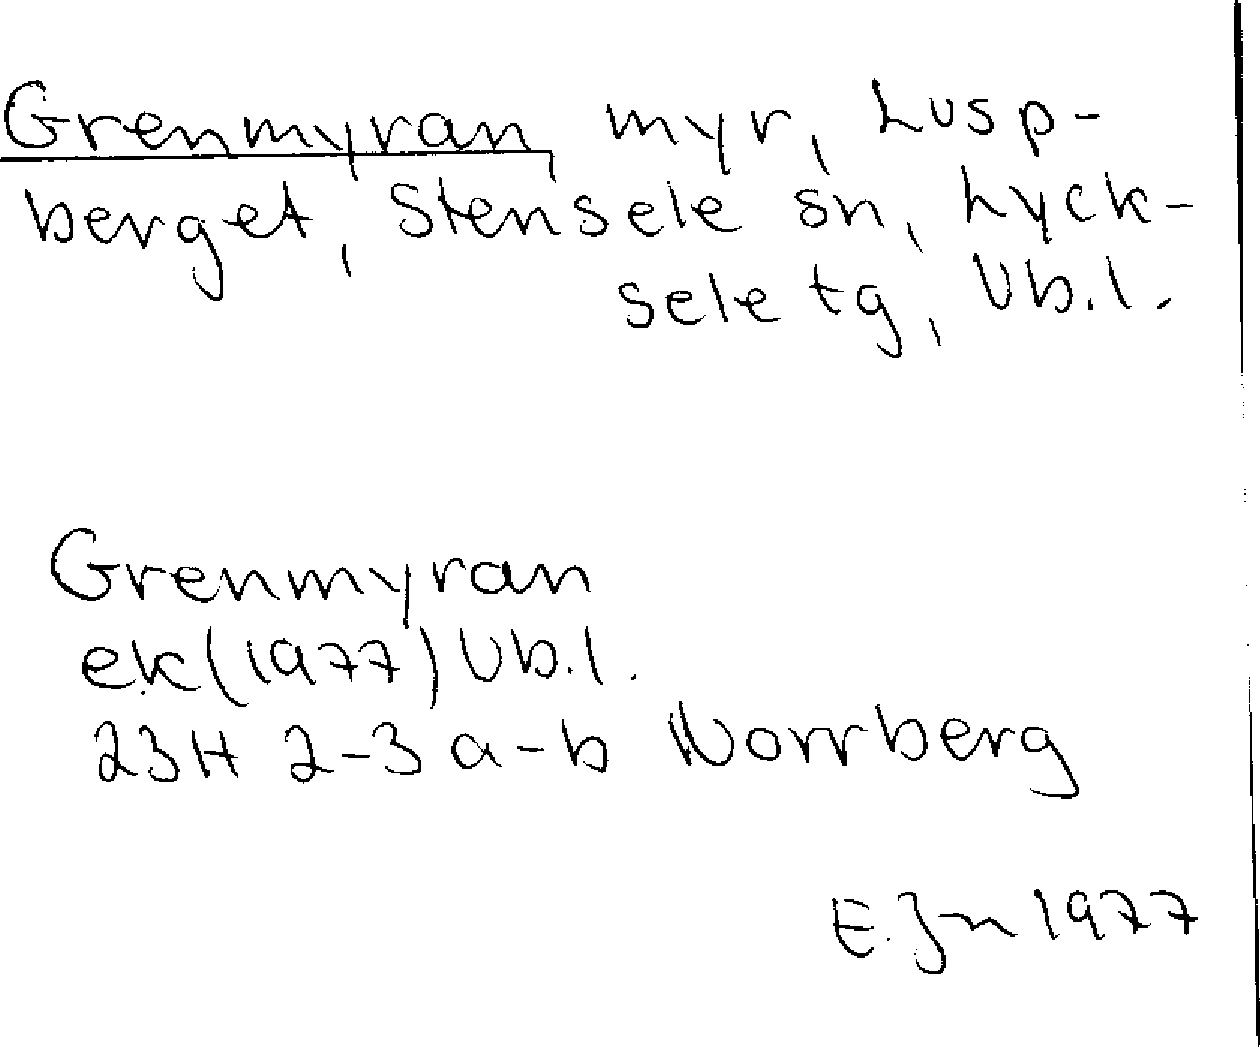 Grenmyran, myr, Lusp-
berget, Stensele sn, Lyck-
sele tg, Vb.l.
Grenmyran
ek (1977) Vb.l.
23H 2-3 a-b Norrberg
E.Jn 1977